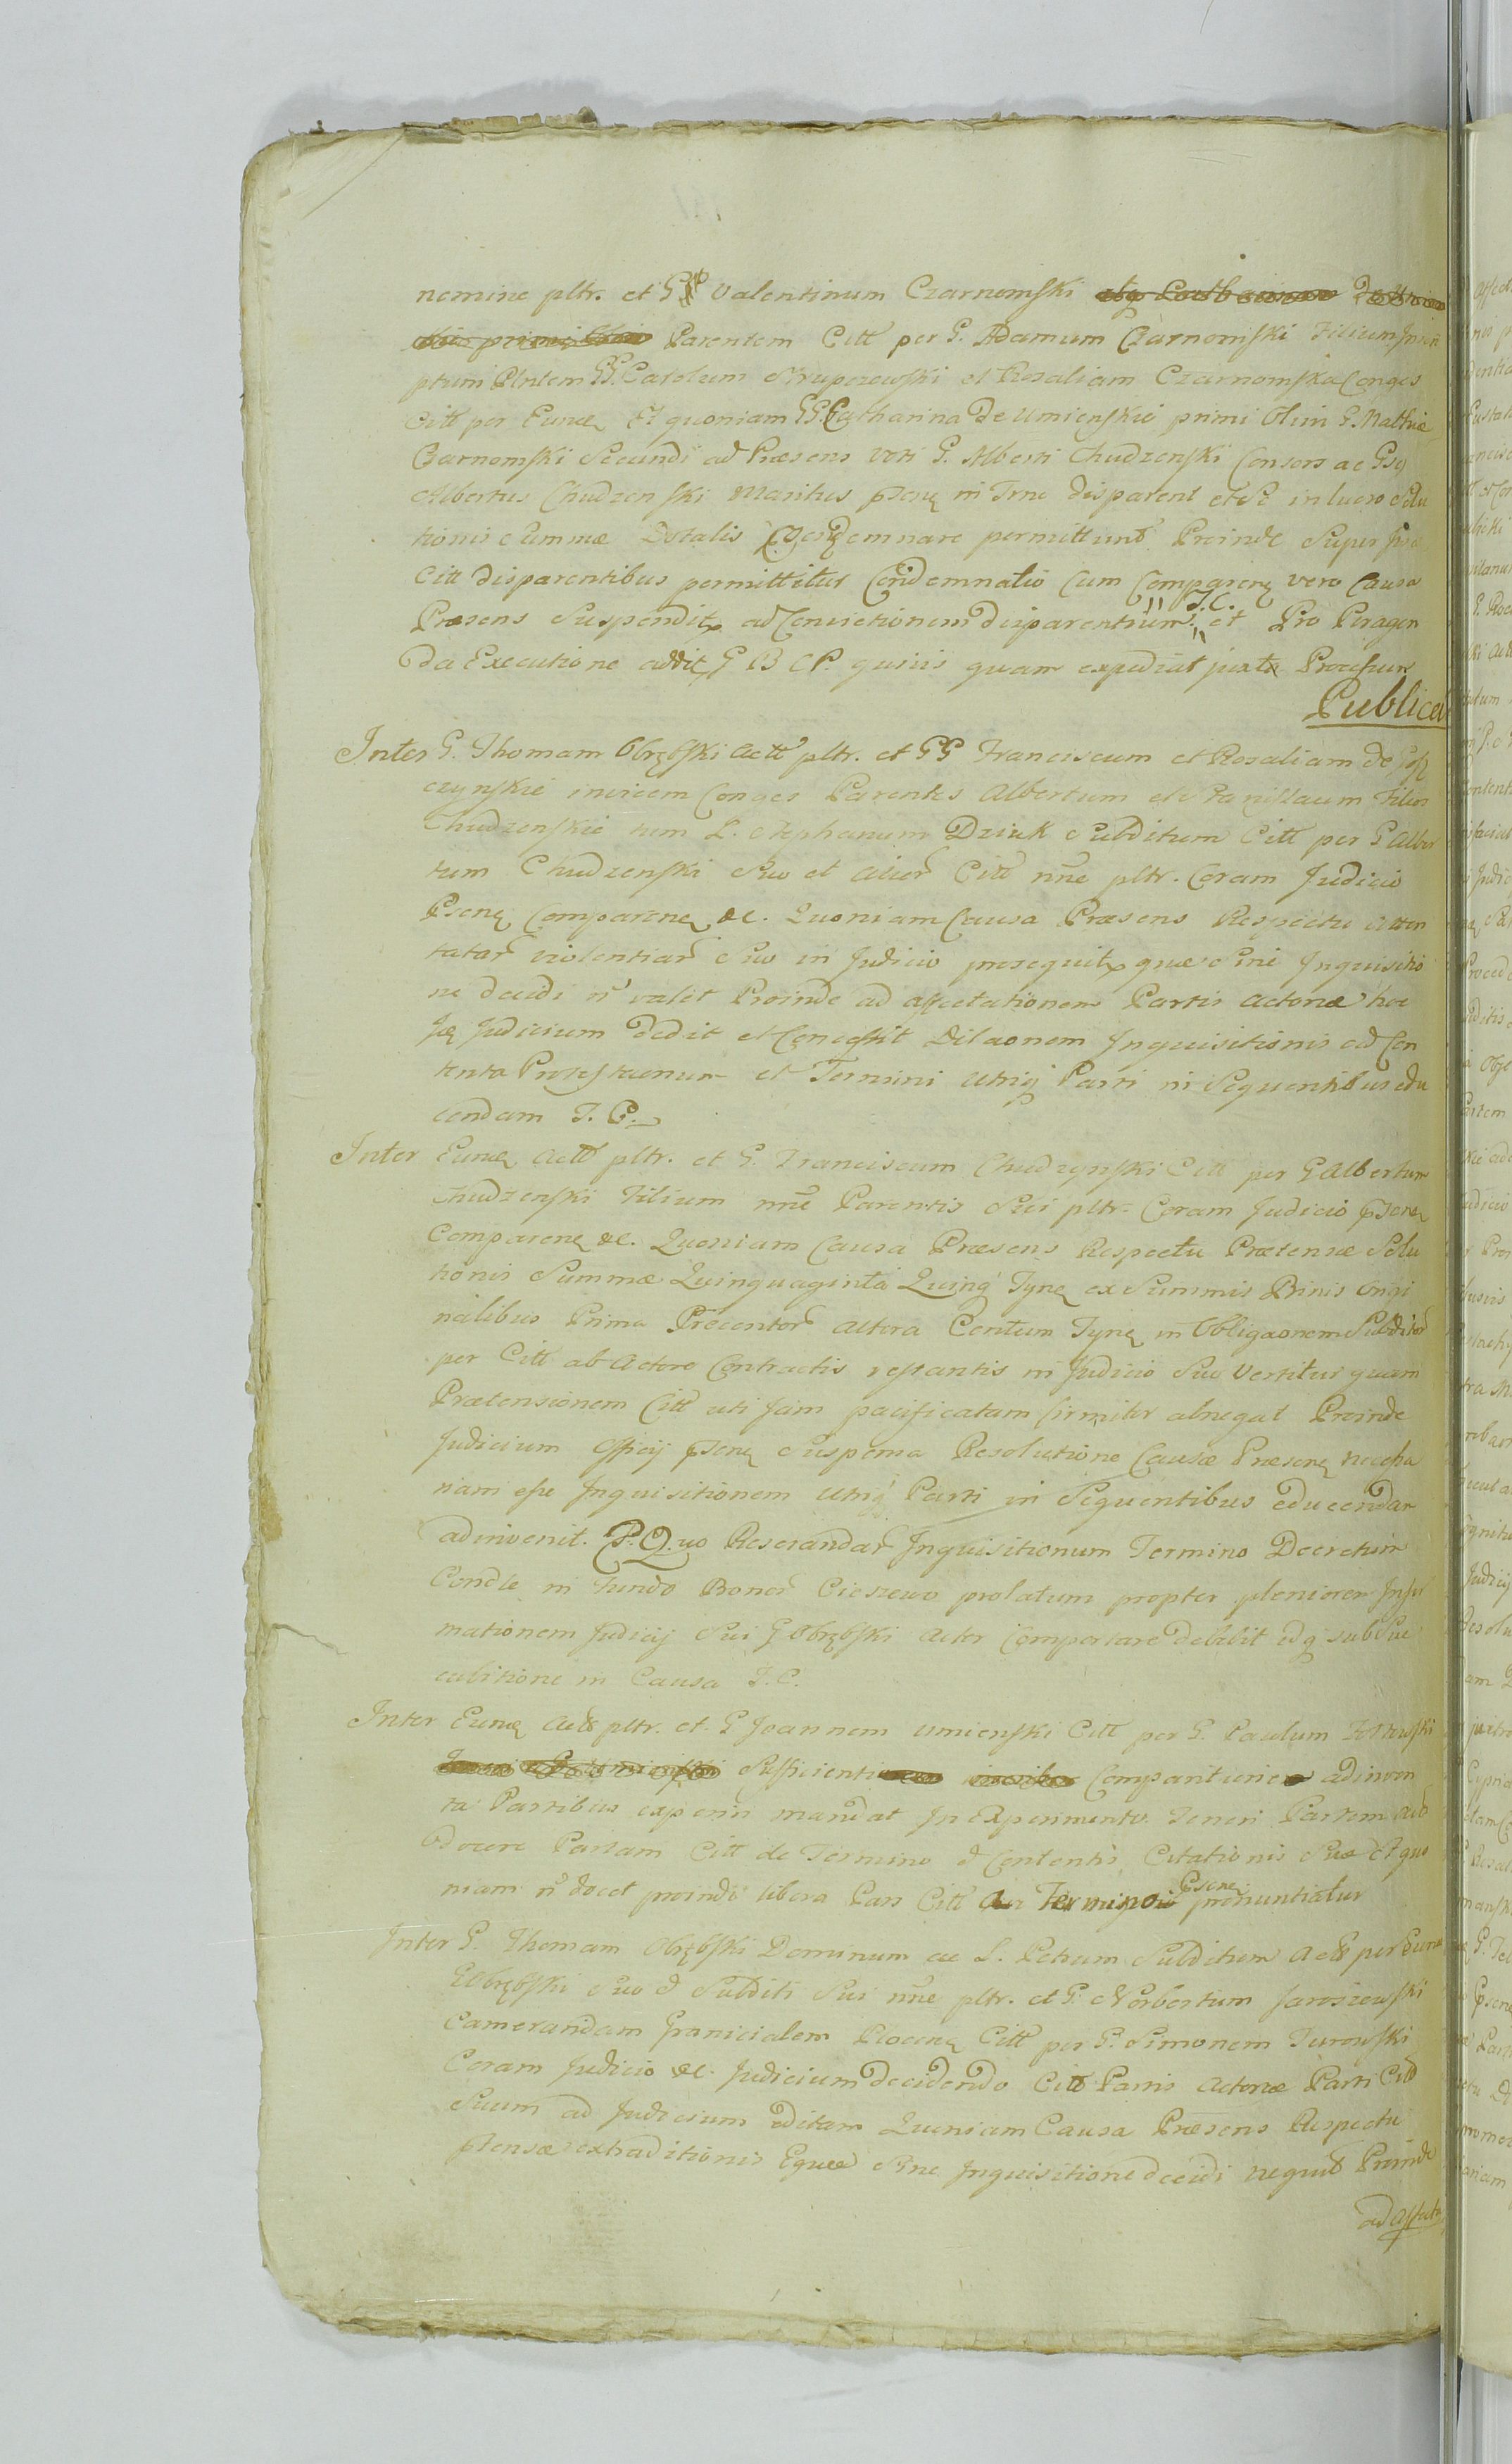 nemine pltr. et G Valentinum Czarnomski
Parentem Citt per G. Adamum Czarnomski Filium
ptum Plntem GG. Carolum Skupczewski et Rosaliam Czarnomska Conges
Citt per Eunq Et quoniam GG. Catharina de Umienskie primi Olim G. Mathiæ
Czarnomski Secundi ad Præsens Voti G. Alberti Chudzenski Consors ac Gsq
Albertus Chudzenski Maritus in Trno disparent et Se in lucro Solu
tionis Summæ Dotalis Condemnare permittunt Proinde Super
Citt disparentibus permittitur Condemnatio Cum Comparenq vero Causa
Præsens Suspendit ad Convictionem disparentium J. C. et Pro Peragen
da Executione addit G B C P. quivis quam expediat juxta Processum
Publicat
Inter G. Thomam Obrębski Actt pltr. et GG Franciscum et Rosaliam de
czynskie invicem Conges Parentes Albertum et Stanislaum Filios
Chudzenskie tum L. Stephanum Dziuk Subditum Citt per G Alber
tum Chudzenski Suo et alior Citt nne pltr. Coram Judicio
Psenq Comparenq &c. Quoniam Causa Præsens Respectu atten
tatar violentiar Suo in Judicio prosequit quæ Sine Inquisitio
ne decidi n valet Proinde ad affectationem Partis Actoreæ hoc
Judicium dedit et Concessit Dilaonem Inquisitionis ad Con
tenta Protestaonum et Termini Utriq Parti in Sequentibus edu
cendam J. C.
Inter Eunq Actt pltr. et G. Franciscum Chudzynski Citt per G Albertum
Chudzenski Filium nne Parentis Sui pltr. Coram Judicio psenq
Comparenq &c. Quoniam Causa Præsens Respectu Prætensæ Solu
tionis Summæ Quinquaginta Quinq Tynq ex Summis Binis Origi
nalibus Prima Præcentor altera Centum Tynq in Obligaonem Subditor
per Citt ab Actore Contractis restantis in Judicio Suo Vertitur quam
Prætensionem Citt uti jam pacificatam firmiter abnegat Proinde
Judicium Officij psenq Suspensa Resolutione Causæ Præsenq necessa
riam esse Inquisitionem Utriq Parti in Sequentibus educendam
adinvenit. P. Quo Reserandar Inquisitionum Termino Decretum
Condle in Fundo Bonor Cieszewo prolatum propter pleniorem Infor
mationem Judicij Sui G Obrębski Actor Comportare debebit idq sub Suc
cubitione in Causa J. C.
Inter Eunq Actt pltr. et G Joannem Umienski Citt per G. Paulum
Sufficienti Compariturien adinven
ta Partibus experiri mandat In Experimento Teneri Partem Act
docere Partam Citt de Termino & Contentis Citationis Suæ Et quo
niam n docet proinde libera Pars Citt a Termino Psenq pronuntiatur
Inter G. Thomam Obrębski Dominum ac L. Petrum Subditum Actt per Eunq
G Obrębski Suo & Subditi Sui nne pltr. et G. Norbertum Jaroszewski
Camerandam Granicialem Plocenq Citt per G. Simonem Turowski
Coram Judicio &c. Judicium decidendo Citt Partis Actoreæ Parti Citt
Suum ad Judicium editam Quoniam Causa Præsens Respectu
ptensæ extraditionis Equæ Sine Inquisitione decidi nequit Proinde
ad affecta